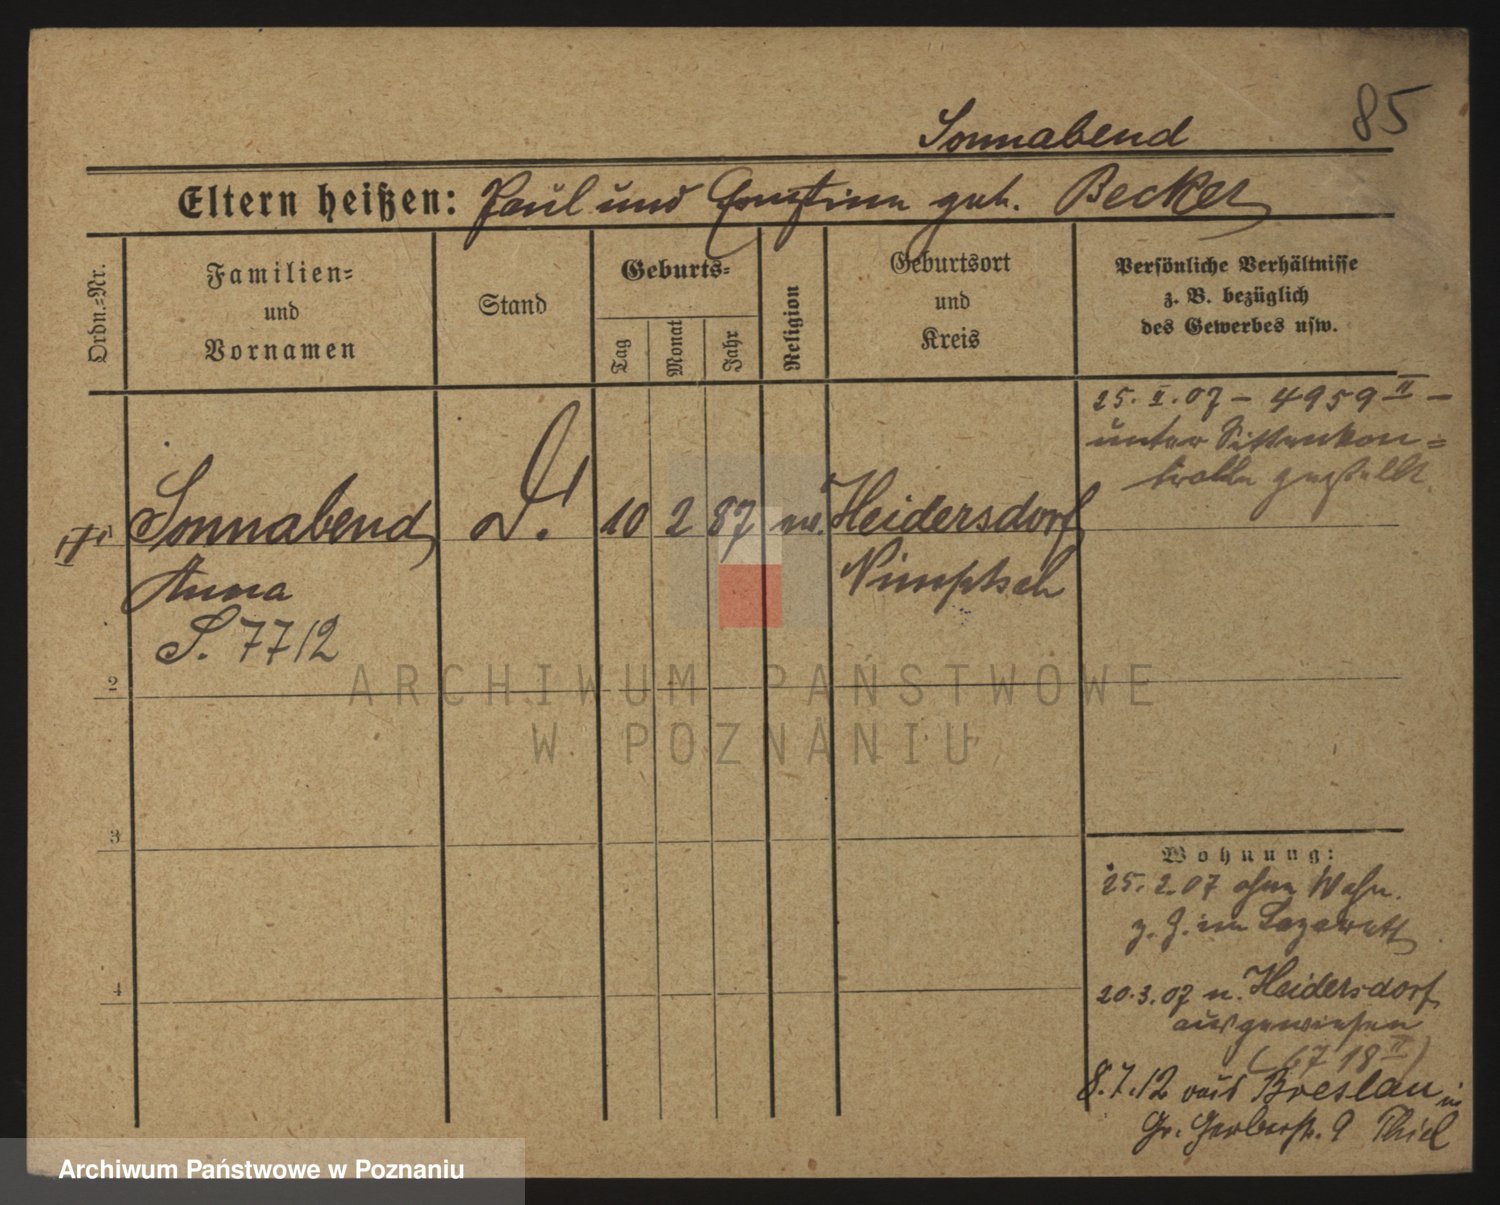 Sonnabend
85
Eltern heißen: Paul und Ernstine geb. Becker
Ordn.-Nr.
Familien-
und
Vornamen
Stand
Geburts-
Tag
Monat
Jahr
Religion
Geburtsort
und
Kreis
Persönliche Verhältnisse
z. B. bezüglich
des Gewerbes usw.
25. II. 07 - 4959 II -
unter Sittenkon=
trolle gestellt.
Sonnabend 10 2 87 ev. Heidersdorf
Anna Nimptsch
S. 7712
2
3
4
Wohnung:
25. 2. 07 ohne Wohn.
z. Z. im Lazarett
20. 3. 07 n. Heidersdorf
ausgewiesen
(6718 II)
8. 7. 12 aus Breslau in
Gr. Gerberstr. 9 Thiel
ARCHIWUM PAŃSTWOWE
W POZNANIU
Archiwum Państwowe w Poznaniu